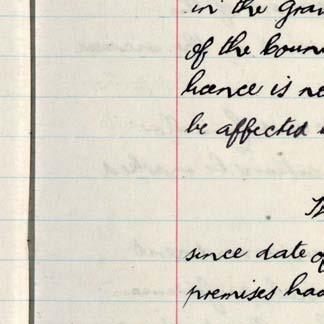 in the gra
of the boun
licence is ne
be affected
since date of
premises had